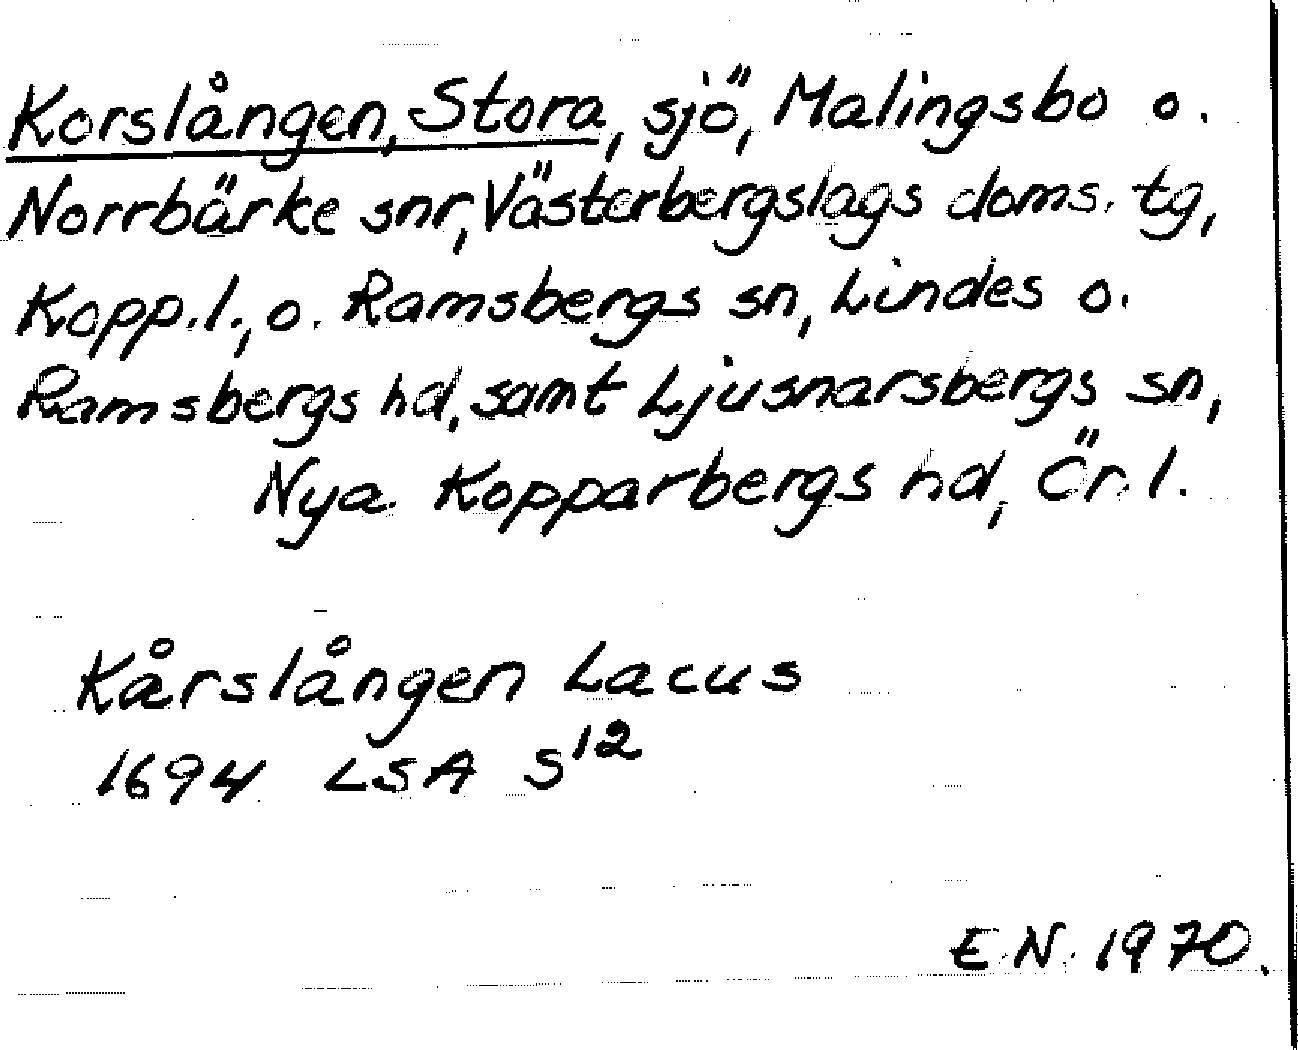 Korslången, Stora, sjö, Malingsbo o.
Norrbärke snr, Västerbergslags doms. tg,
Kopp.l., o. Ramsbergs sn, Lindes o.
Ramsbergs hd, samt Ljusnarsbergs sn,
Nya Kopparbergs hd, Ör. l.
Kårslången Lacus
1694 LSA S12
E.N. 1970.